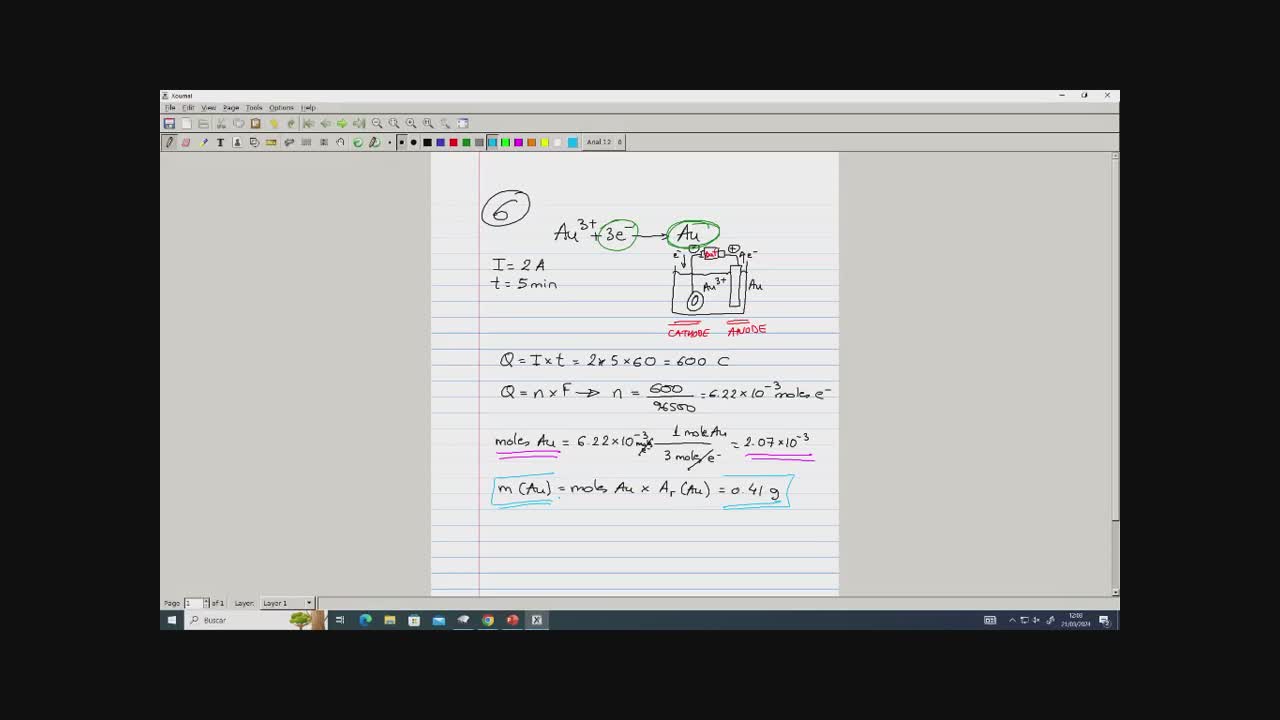 Xournal
File Edit View Page Tools Options Help
Arial 12
6
Au³⁺ + 3e⁻ → Au
I = 2 A
t = 5 min
e⁻ - bat + e⁻
Au³⁺ Au
CATHODE ANODE
Q = I × t = 2 × 5 × 60 = 600 C
Q = n × F → n = 600/96500 = 6.22 × 10⁻³ moles e⁻
moles Au = 6.22 × 10⁻³ moles e⁻ 1 mole Au / 3 moles e⁻ = 2.07 × 10⁻³
m (Au) = moles Au × Ar (Au) = 0.41 g
Page 1 of 1 Layer: Layer 1
Buscar
12:03
21/03/2024